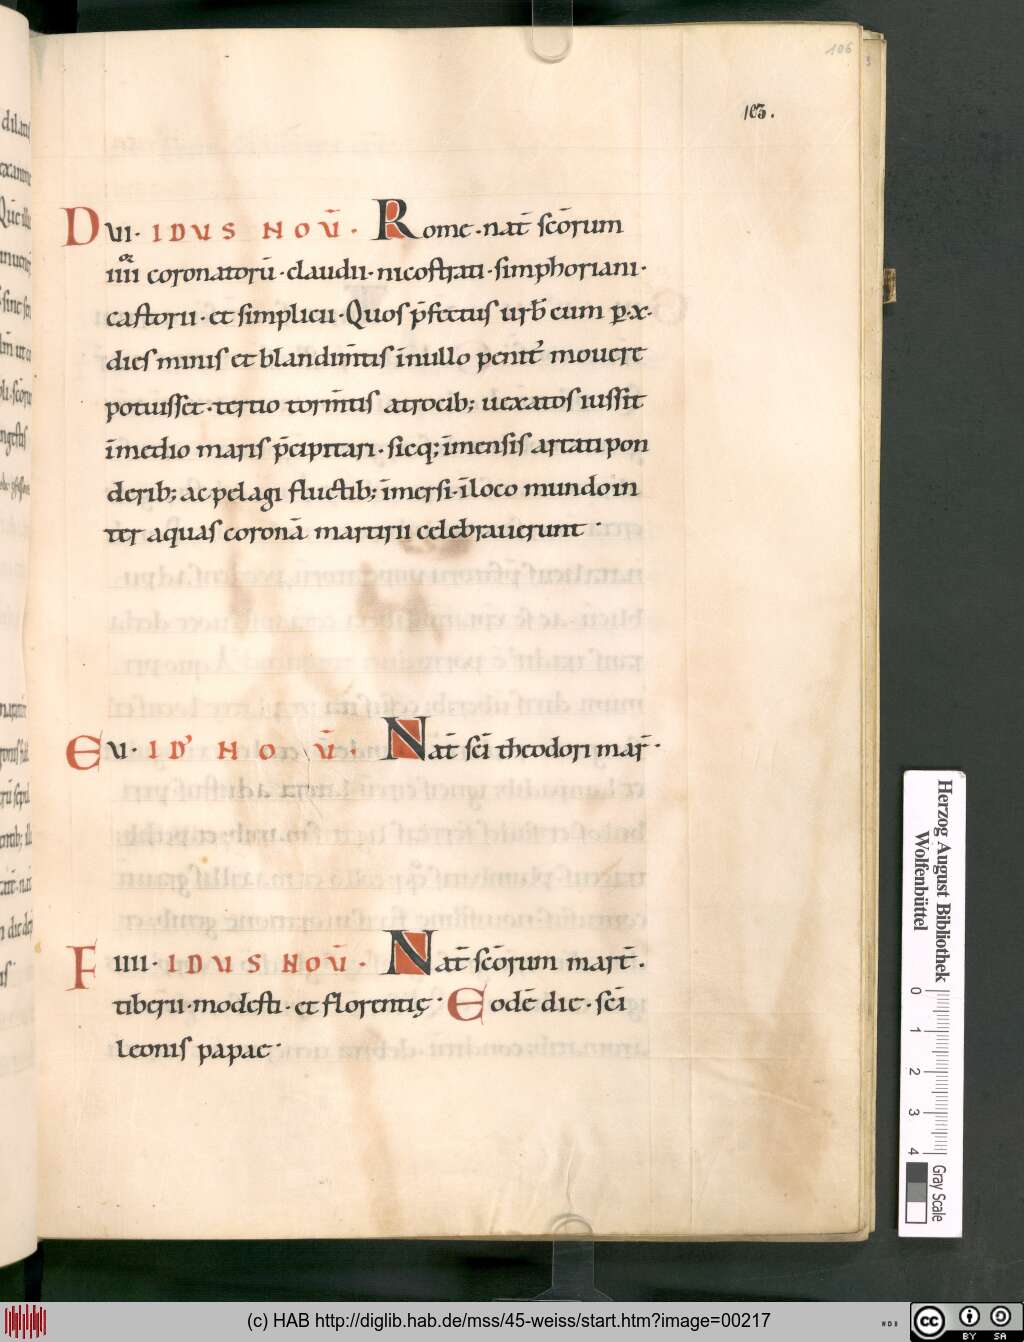 106
103.
D VI · IDUS NOV̄ · Rome · nat̄ sc̄orum
IIII or coronatorū · claudii · nicostrati · simphoriani ·
castorii · et simplicii · Quos p̄fectus urb̄ cum p̲ · x ·
dies minis et blandim̄tis īnullo penit᷒ mouere
potuisset · tertio torm̄tis atrocib; uexatos iussit
īmedio maris p̄cipitari · sicq; īmensis artati pon
derib; ac pelagi fluctib; īmersi · īloco mundo in
ter aquas coronā martirii celebrauerunt ·
E V · ID' NOV̄ · Nat̄ sc̄i theodori mar̄ ·
F IIII · IDUS NOV̄ · Nat̄ sc̄orum mart̄ ·
tiberii · modesti · et florentię · Eodē die · sc̄i
leonis papae ·
Herzog August Bibliothek
Wolfenbüttel
0 1 2 3 4
Gray Scale
(c) HAB http://diglib.hab.de/mss/45-weiss/start.htm?image=00217
WDB
cc BY SA